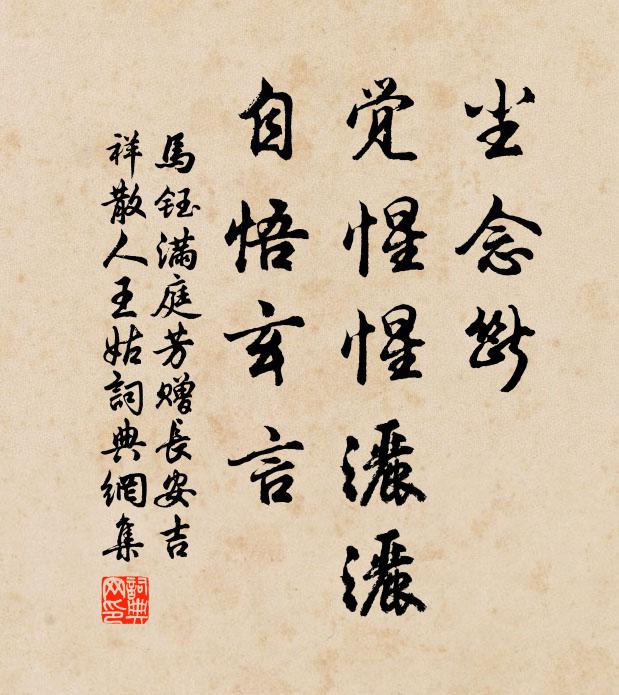 尘念断
觉惺惺灑灑
自悟玄言
馬鈺滿庭芳赠長安吉
祥散人王姑詞典網集
詞典網印